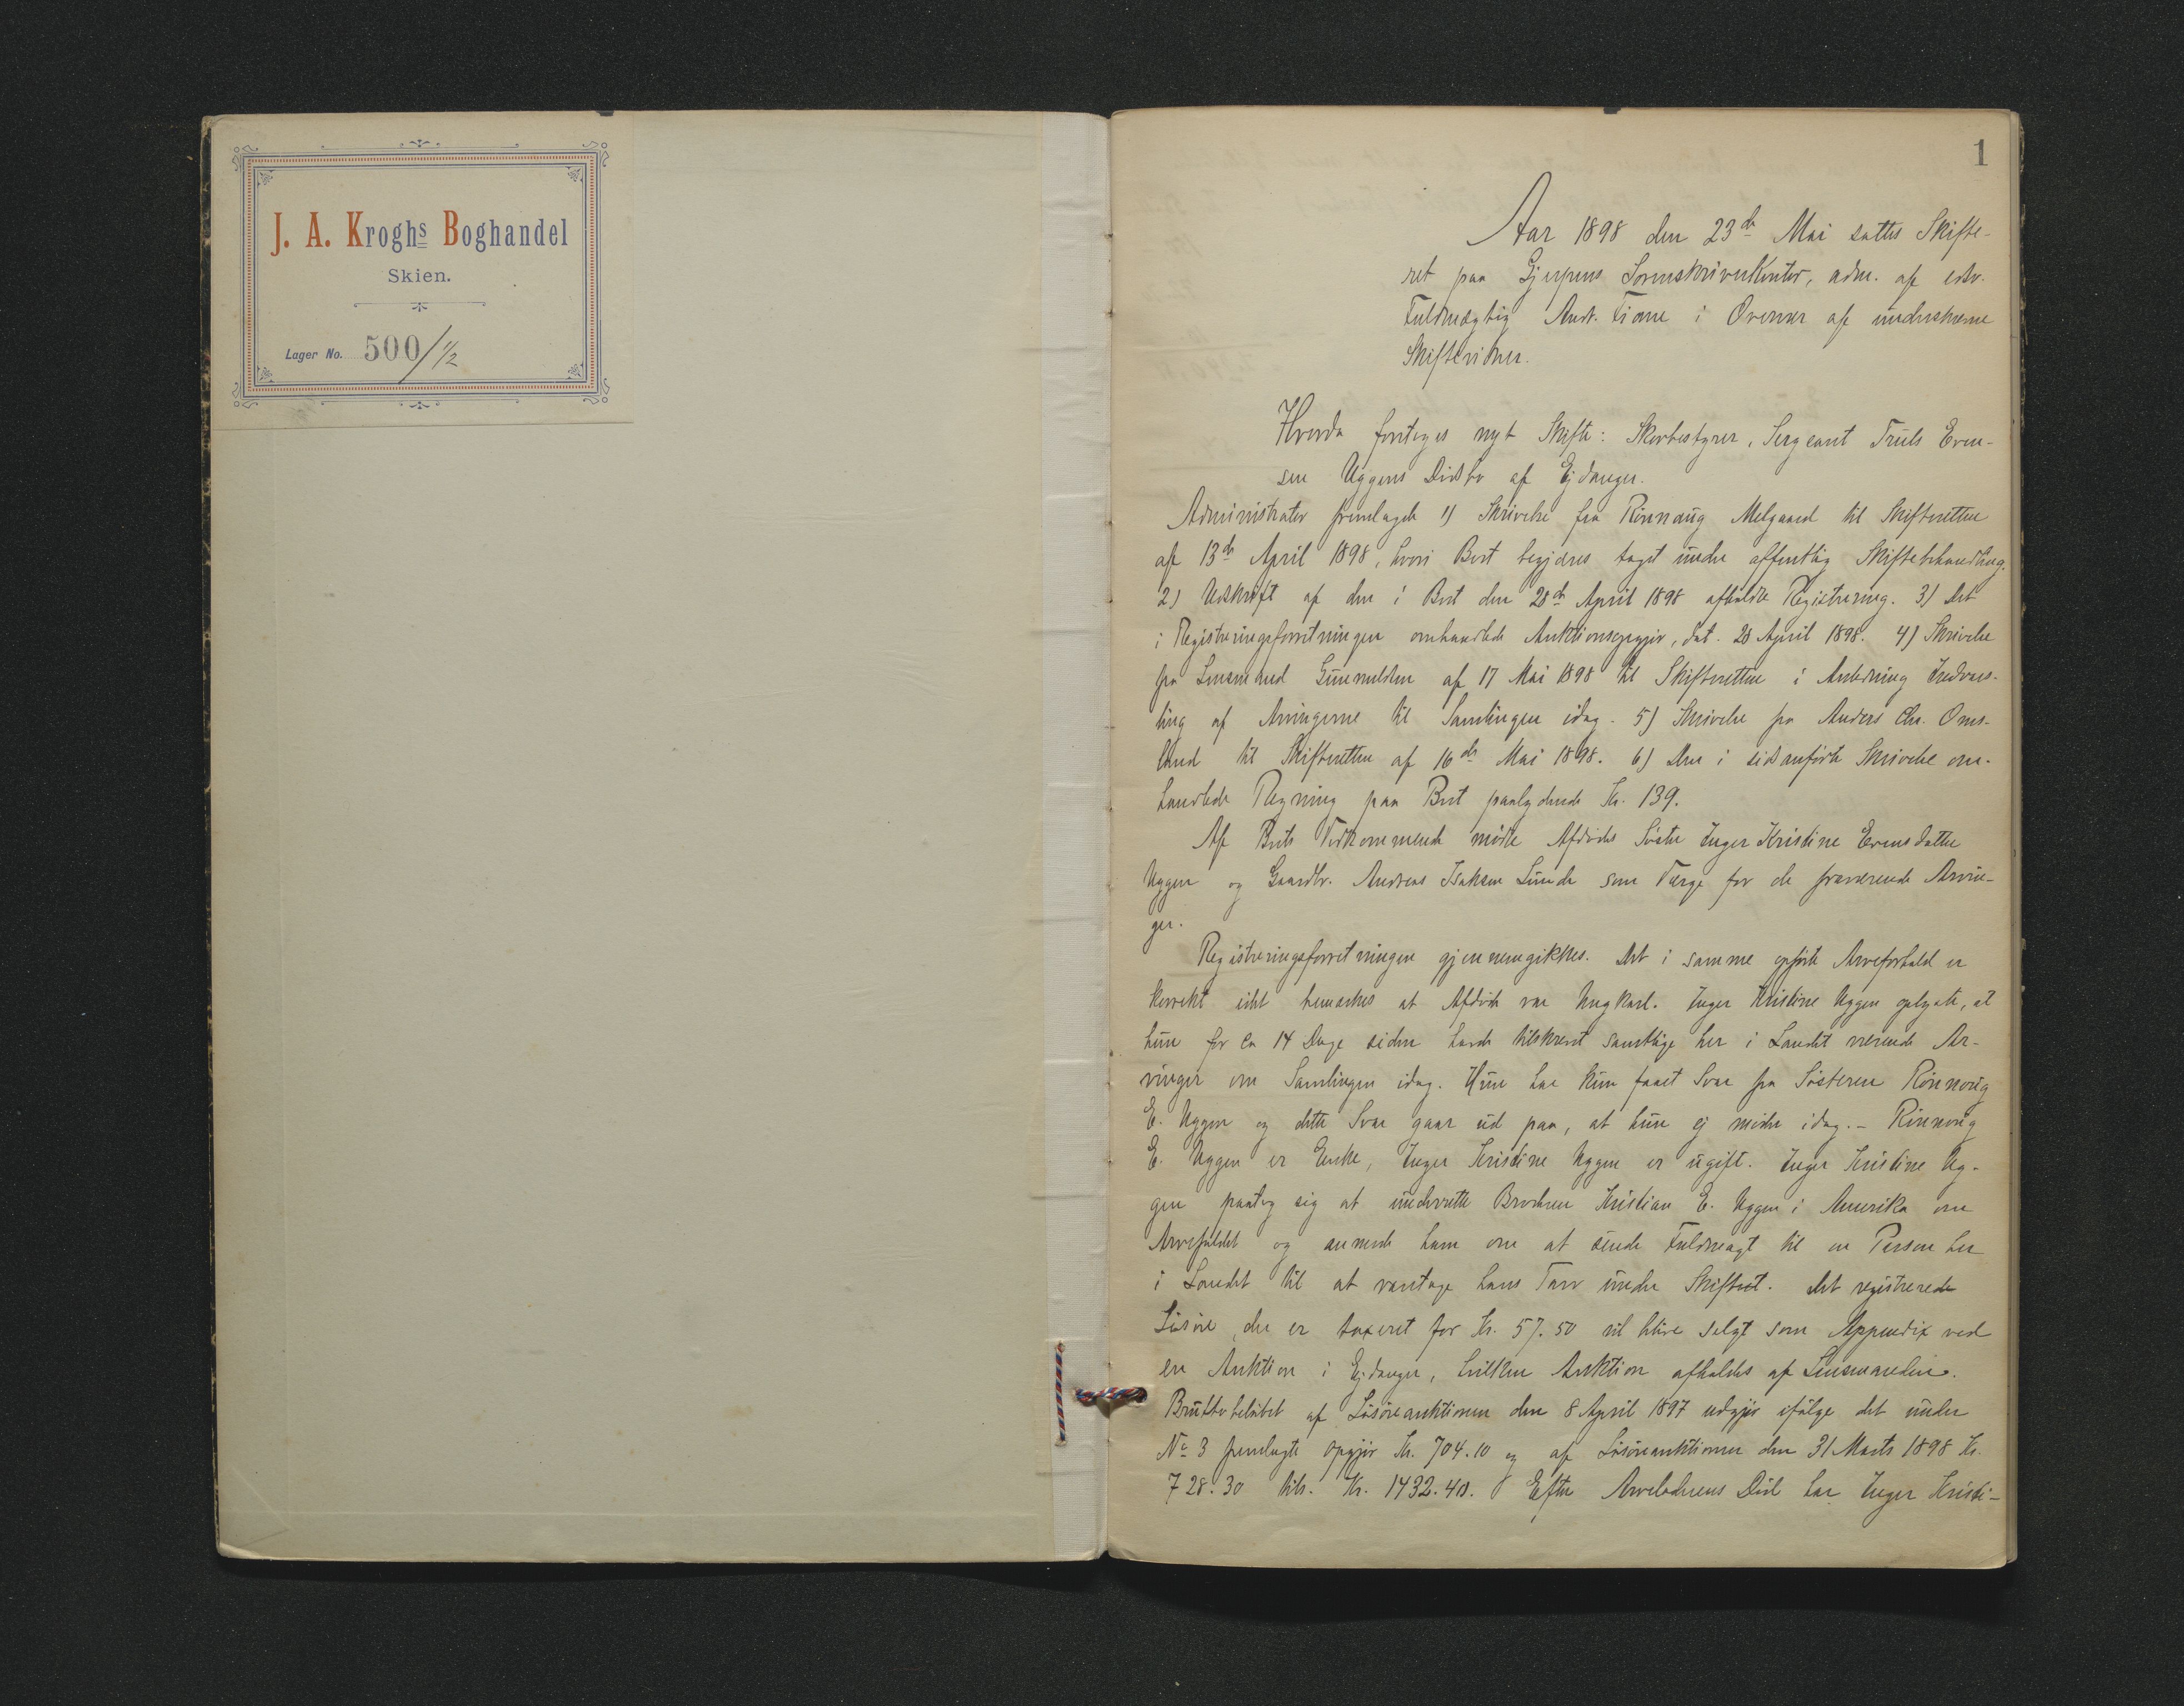 J. A. Kroghs Boghandel
Skien.
Lager No. 500/½
1
Aar 1898 den 23de Mai sattes Skifte-
ret paa Gjerpens Sorenskriverkontor, adm. af edsv.
Fuldmægtig Andr. i Overvær af underskrevne
Skiftevidner.
Hvorda foretoges nyt Skifte: Skovbestyrer, Sergeant Truls Even-
sen Uggens Dødsbo af Ejdanger.
Administrator fremlagde 1) Skrivelse fra Rønnaug Melgaard til Skifteretten
af 13de April 1898, hvori Boet begjæres taget under offentlig Skiftebehandling.
2) Udskrift af den i Boet den 28de April 1898 afholdte Registrering. 3) Det
i Registreringsforretningen omhandlede Auktionsopgjør, dat. 28 April 1898. 4) Skrivelse
fra Lensmand Gunnuldsen af 17 Mai 1898 til Skifteretten i Anledning Indvars-
ling af Arvingerne til Samlingen idag. 5) Skrivelse fra Anders Chr. Oms-
land til Skifteretten af 16de Mai 1898. 6) Den i sidstanførte Skrivelse om-
handlede Regning paa Boet paalydende Kr. 139.
Af Boets Vedkommende mødte Afdødes Søster Inger Kristine Evensdatter
Uggen og Gaardbr. Andreas Isaksen Lunde som Værge for de fraværende Arvin-
ger.
Registreringsforretningen gjennemgikkes. Det i samme opførte Arveforhold er
korrekt idet bemærkes at Afdøde var Ungkarl. Inger Kristine Uggen oplyste, at
hun for ca 14 Dage siden havde tilskrevet samtlige her i Landet værende Ar-
vinger om Samlingen idag. Hun har kun faaet Svar fra Søsteren Rønnoug
E. Uggen og dette Svar gaar ud paa, at hun ej møder idag. - Rønnoug
E. Uggen er Enke, Inger Kristine Uggen er ugift. Inger Kristine Ug-
gen paatog sig at underrette Broderen Kristian E. Uggen i Amerika om
Arvefaldet og anmode ham om at sende Fuldmagt til en Person her
i Landet til at varetage hans Tarv under Skiftet. Det registrerede
Løsøre, der er taxeret for Kr. 57.50 vil blive solgt som Appendix ved
en Auktion i Ejdanger, hvilken Auktion afholdes af Lensmanden.
Bruttobeløbet af Løsøreauktionen den 8 April 1897 udgjør ifølge det under
No 3 fremlagte Opgjør Kr. 704.10 og af Løsøreauktionen den 31 Marts 1898 Kr.
728.30 tils. Kr. 1432.40. Efter Arveladerens Død har Inger Kristi-